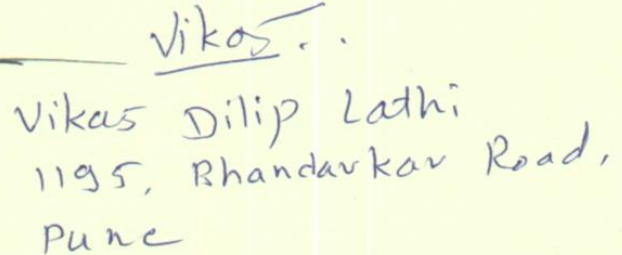 Vikas..
Vikas Dilip Lathi
1195, Bhandarkar Road,
Pune